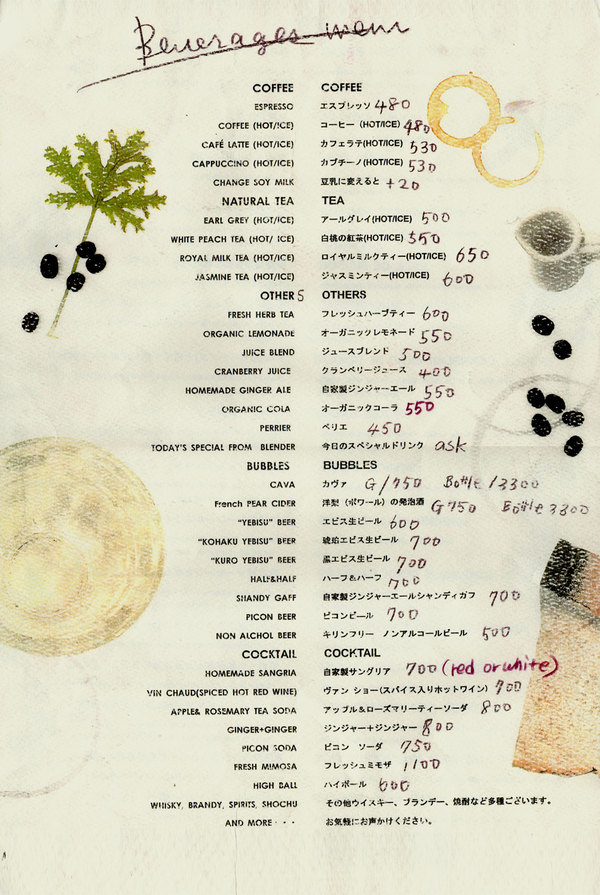 Beverages menu
COFFEE COFFEE
ESPRESSO エスプレッソ 480
COFFEE (HOT/ICE) コーヒー (HOT/ICE) 480
CAFÉ LATTE (HOT/ICE) カフェラテ(HOT/ICE) 530
CAPPUCCINO (HOT/ICE) カプチーノ(HOT/ICE) 530
CHANGE SOY MILK 豆乳に変えると +20
NATURAL TEA TEA
EARL GREY (HOT/ICE) アールグレイ(HOT/ICE) 500
WHITE PEACH TEA (HOT/ ICE) 白桃の紅茶(HOT/ICE) 550
ROYAL MILK TEA (HOT/ICE) ロイヤルミルクティー(HOT/ICE) 650
JASMINE TEA (HOT/ICE) ジャスミンティー(HOT/ICE) 600
OTHERS OTHERS
FRESH HERB TEA フレッシュハーブティー 600
ORGANIC LEMONADE オーガニックレモネード 550
JUICE BLEND ジュースブレンド 500
CRANBERRY JUICE クランベリージュース 400
HOMEMADE GINGER ALE 自家製ジンジャーエール 550
ORGANIC COLA オーガニックコーラ 550
PERRIER ペリエ 450
TODAY'S SPECIAL FROM BLENDER 今日のスペシャルドリンク ask
BUBBLES BUBBLES
CAVA カヴァ G/750 Bottle/3300
French PEAR CIDER 洋梨（ポワール）の発泡酒 G750 Bottle 3300
“YEBISU” BEER エビス生ビール 600
“KOHAKU YEBISU” BEER 琥珀エビス生ビール 700
“KURO YEBISU” BEER 黒エビス生ビール 700
HALF&HALF ハーフ&ハーフ 700
SHANDY GAFF 自家製ジンジャーエールシャンディガフ 700
PICON BEER ピコンビール 700
NON ALCHOL BEER キリンフリー ノンアルコールビール 500
COCKTAIL COCKTAIL
HOMEMADE SANGRIA 自家製サングリア 700 (red or white)
VIN CHAUD(SPICED HOT RED WINE) ヴァン ショー(スパイス入りホットワイン) 700
APPLE& ROSEMARY TEA SODA アップル&ローズマリーティーソーダ 800
GINGER+GINGER ジンジャー+ジンジャー 800
PICON SODA ピコン ソーダ 750
FRESH MIMOSA フレッシュミモザ 1100
HIGH BALL ハイボール 600
WHISKY, BRANDY, SPIRITS, SHOCHU その他ウイスキー、ブランデー、焼酎など多種ございます。
AND MORE・・・ お気軽にお声かけください。